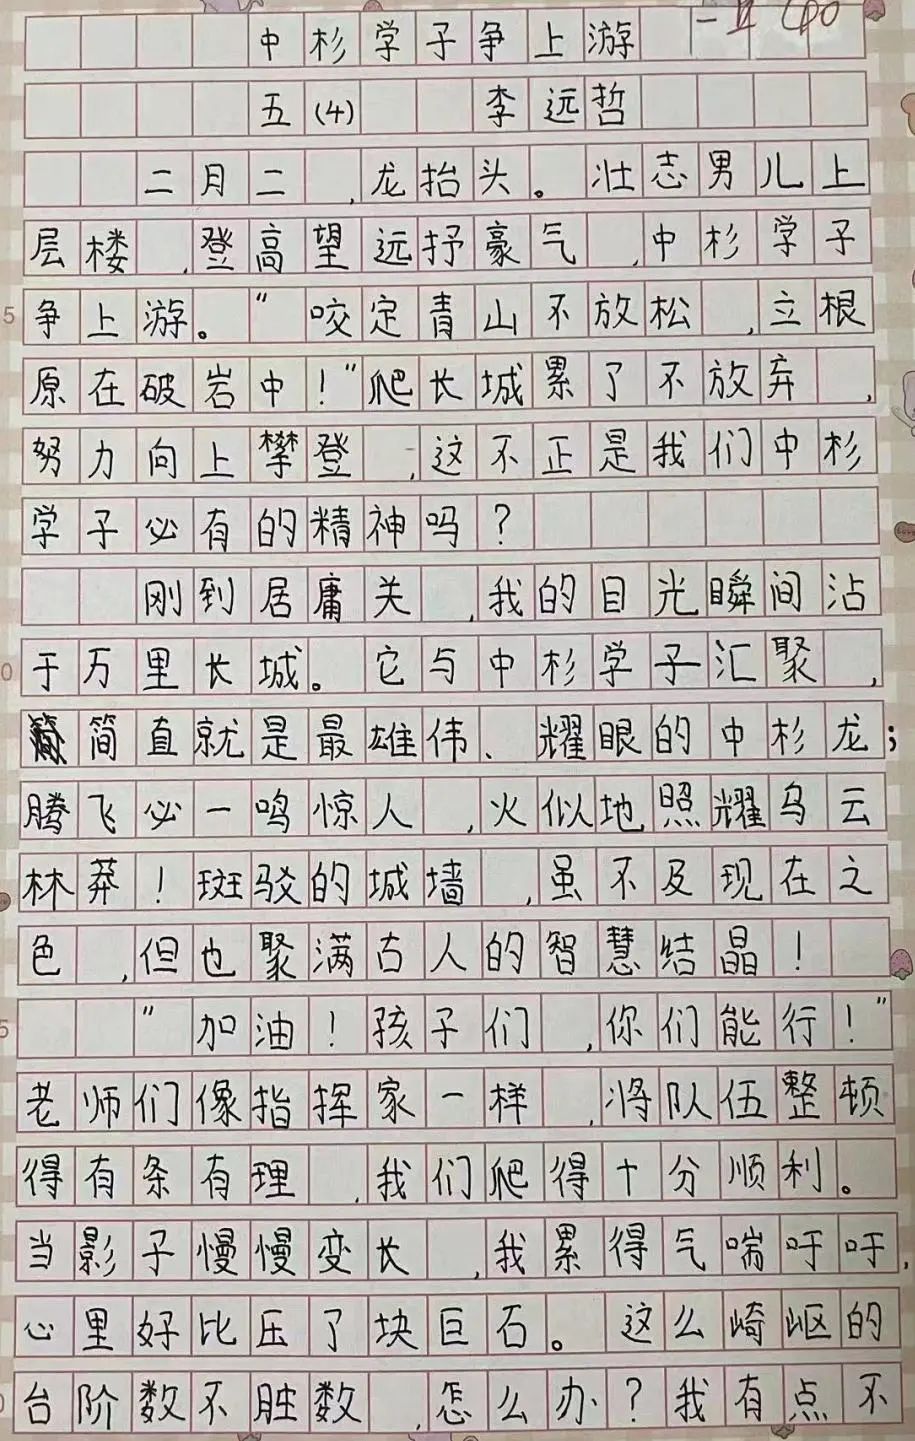 中杉学子争上游
五(4) 李远哲
二月二,龙抬头。壮志男儿上
层楼,登高望远抒豪气,中杉学子
争上游。"咬定青山不放松,立根
原在破岩中!"爬长城累了不放弃,
努力向上攀登,这不正是我们中杉
学子必有的精神吗?
刚到居庸关,我的目光瞬间沾
于万里长城。它与中杉学子汇聚,
简直就是最雄伟、耀眼的中杉龙;
腾飞必一鸣惊人,火似地照耀乌云
林莽!斑驳的城墙,虽不及现在之
色,但也聚满古人的智慧结晶!
"加油!孩子们,你们能行!"
老师们像指挥家一样,将队伍整顿
得有条有理,我们爬得十分顺利。
当影子慢慢变长,我累得气喘吁吁,
心里好比压了块巨石。这么崎岖的
台阶数不胜数,怎么办?我有点不